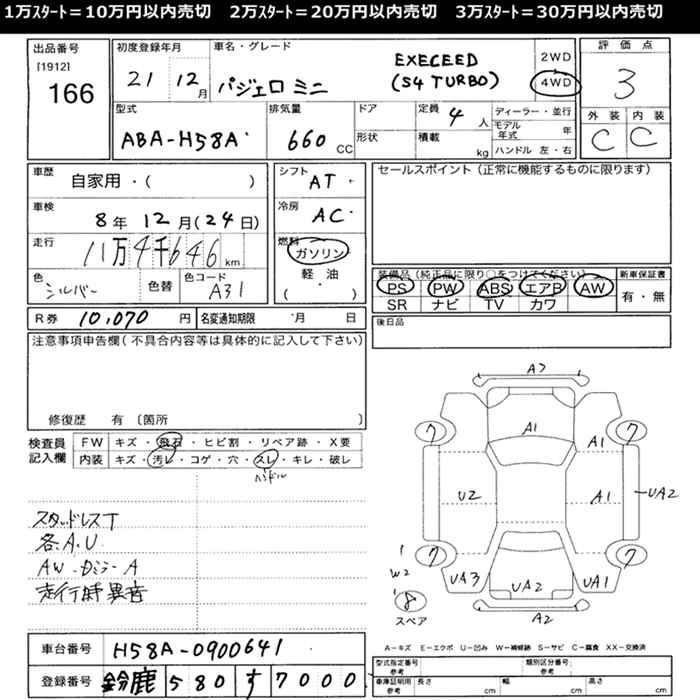 1万スタート＝10万円以内売切　2万スタート＝20万円以内売切　3万スタート＝30万円以内売切
出品番号
[1912]
166
初度登録年月
21 12月
車名・グレード
パジェロ ミニ
EXECEED
(S4 TURBO)
2WD
4WD
評価点
3
外装 内装
C C
型式
ABA-H58A
排気量
660 CC
ドア
形状
定員 4 人
積載 kg
ディーラー・並行
モデル年式 年
ハンドル 左・右
車歴
自家用・( )
車検
8年 12月(24日)
走行
11万4千646km
色
シルバー
色替
色コード
A31
シフト
AT
冷房
AC
燃料
ガソリン
軽・油
( )
セールスポイント(正常に機能するものに限ります)
装備品(純正品に限り○をつけてください)
PS PW ABS エアB AW
SR ナビ TV カワ
新車保証書
有・無
R券 10,070 円
名変通知期限 ・月 日
後日品
注意事項申告欄(不具合内容等は具体的に記入して下さい)
修復歴 有 〔箇所 〕
検査員
記入欄
FW キズ・飛石・ヒビ割・リペア跡・X要
内装 キズ・汚レ・コゲ・穴・スレ・キレ・破レ
ハンドル
スタッドレスT
各A.U
AW・ドミラーA
走行時異音
A7
A1
7 A1 7
U2 A1 UA2
7 7
UA3 UA2 UA1
A2
W2
8
スペア
車台番号 H58A-0900641
登録番号 鈴鹿 580 す 7000
A－キズ E－エクボ U－凹み W－補修跡 S－サビ C－腐食 XX－交換済
型式指定番号
参考
類別区分番号
参考
車庫証明用
参考
長さ cm 幅 cm 高さ cm